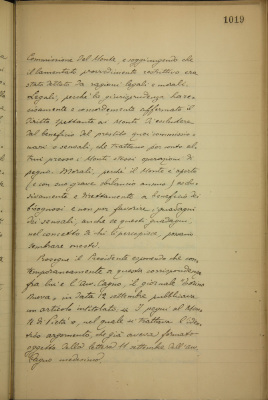 1019
Commissione del Monte, e soggiungendo che
il lamentato provvedimento restrittivo era
stato dettato da ragioni legali e morali.
Legali, perché la giurisprudenza ha
e concordemente affermato il
diritto spettante ai Monti di escludere
dal beneficio del prestito quei commissio-
nari o sensali, che trattano per conto al-
trui presso i Monti stessi operazioni di
pegno. Morali, perché il Monte è aperto
(e con suo grave sbilancio annuo) esclu-
sivamente e direttamente a beneficio dei
bisognosi e non per favorire guadagni
dei sensali, anche se questi guadagni,
nel concetto di chi li percepisce, possono
sembrare onesti.
Prosegue il Presidente esponendo che con-
temporaneamente a questa corrispondenza
fra lui e l'avv. Cagno, il giornale
in data 12 settembre pubblicava
un articolo intitolato I pegni al Monte
di Pietà, nel quale si trattava l'iden-
tico argomento, che già aveva formato
oggetto della lettera 11 settembre dell'avv.
Cagno medesimo.